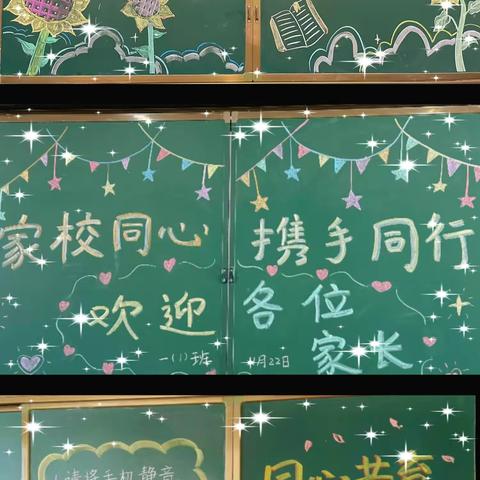 家校同心 携手同行
欢迎 各位
家长
一(1)班 11月22日
1.请将手机静音
同心共育